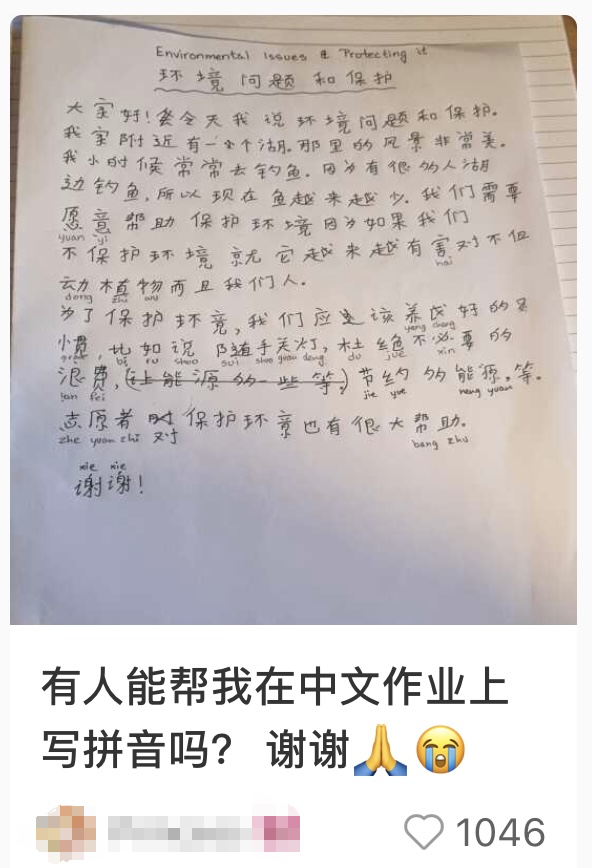 Environmental Issues & Protecting it
环境问题和保护
大家好!今天我说环境问题和保护.
我家附近有一个湖.那里的风景非常美.
我小时候常常去钓鱼.因为有很多人湖
边钓鱼,所以现在鱼越来越少.我们需要
愿意帮助保护环境因为如果我们
yuan yi
不保护环境就它越来越有害对不但
hai
动植物而且我们人.
dong zhi wu
为了保护环境,我们应该养成好的习
yang cheng
惯,比如说随手关灯,杜绝不必要的
guan bi ru shuo sui shou guan deng du jue xin
浪费,(让能源的一些等)节约的能源,等.
lan fei jie yue neng yuan
志愿者对保护环境也有很大帮助.
zhe yuan zhi 对 bang zhu
xie xie
谢谢!
有人能帮我在中文作业上
写拼音吗? 谢谢🙏😭
1046